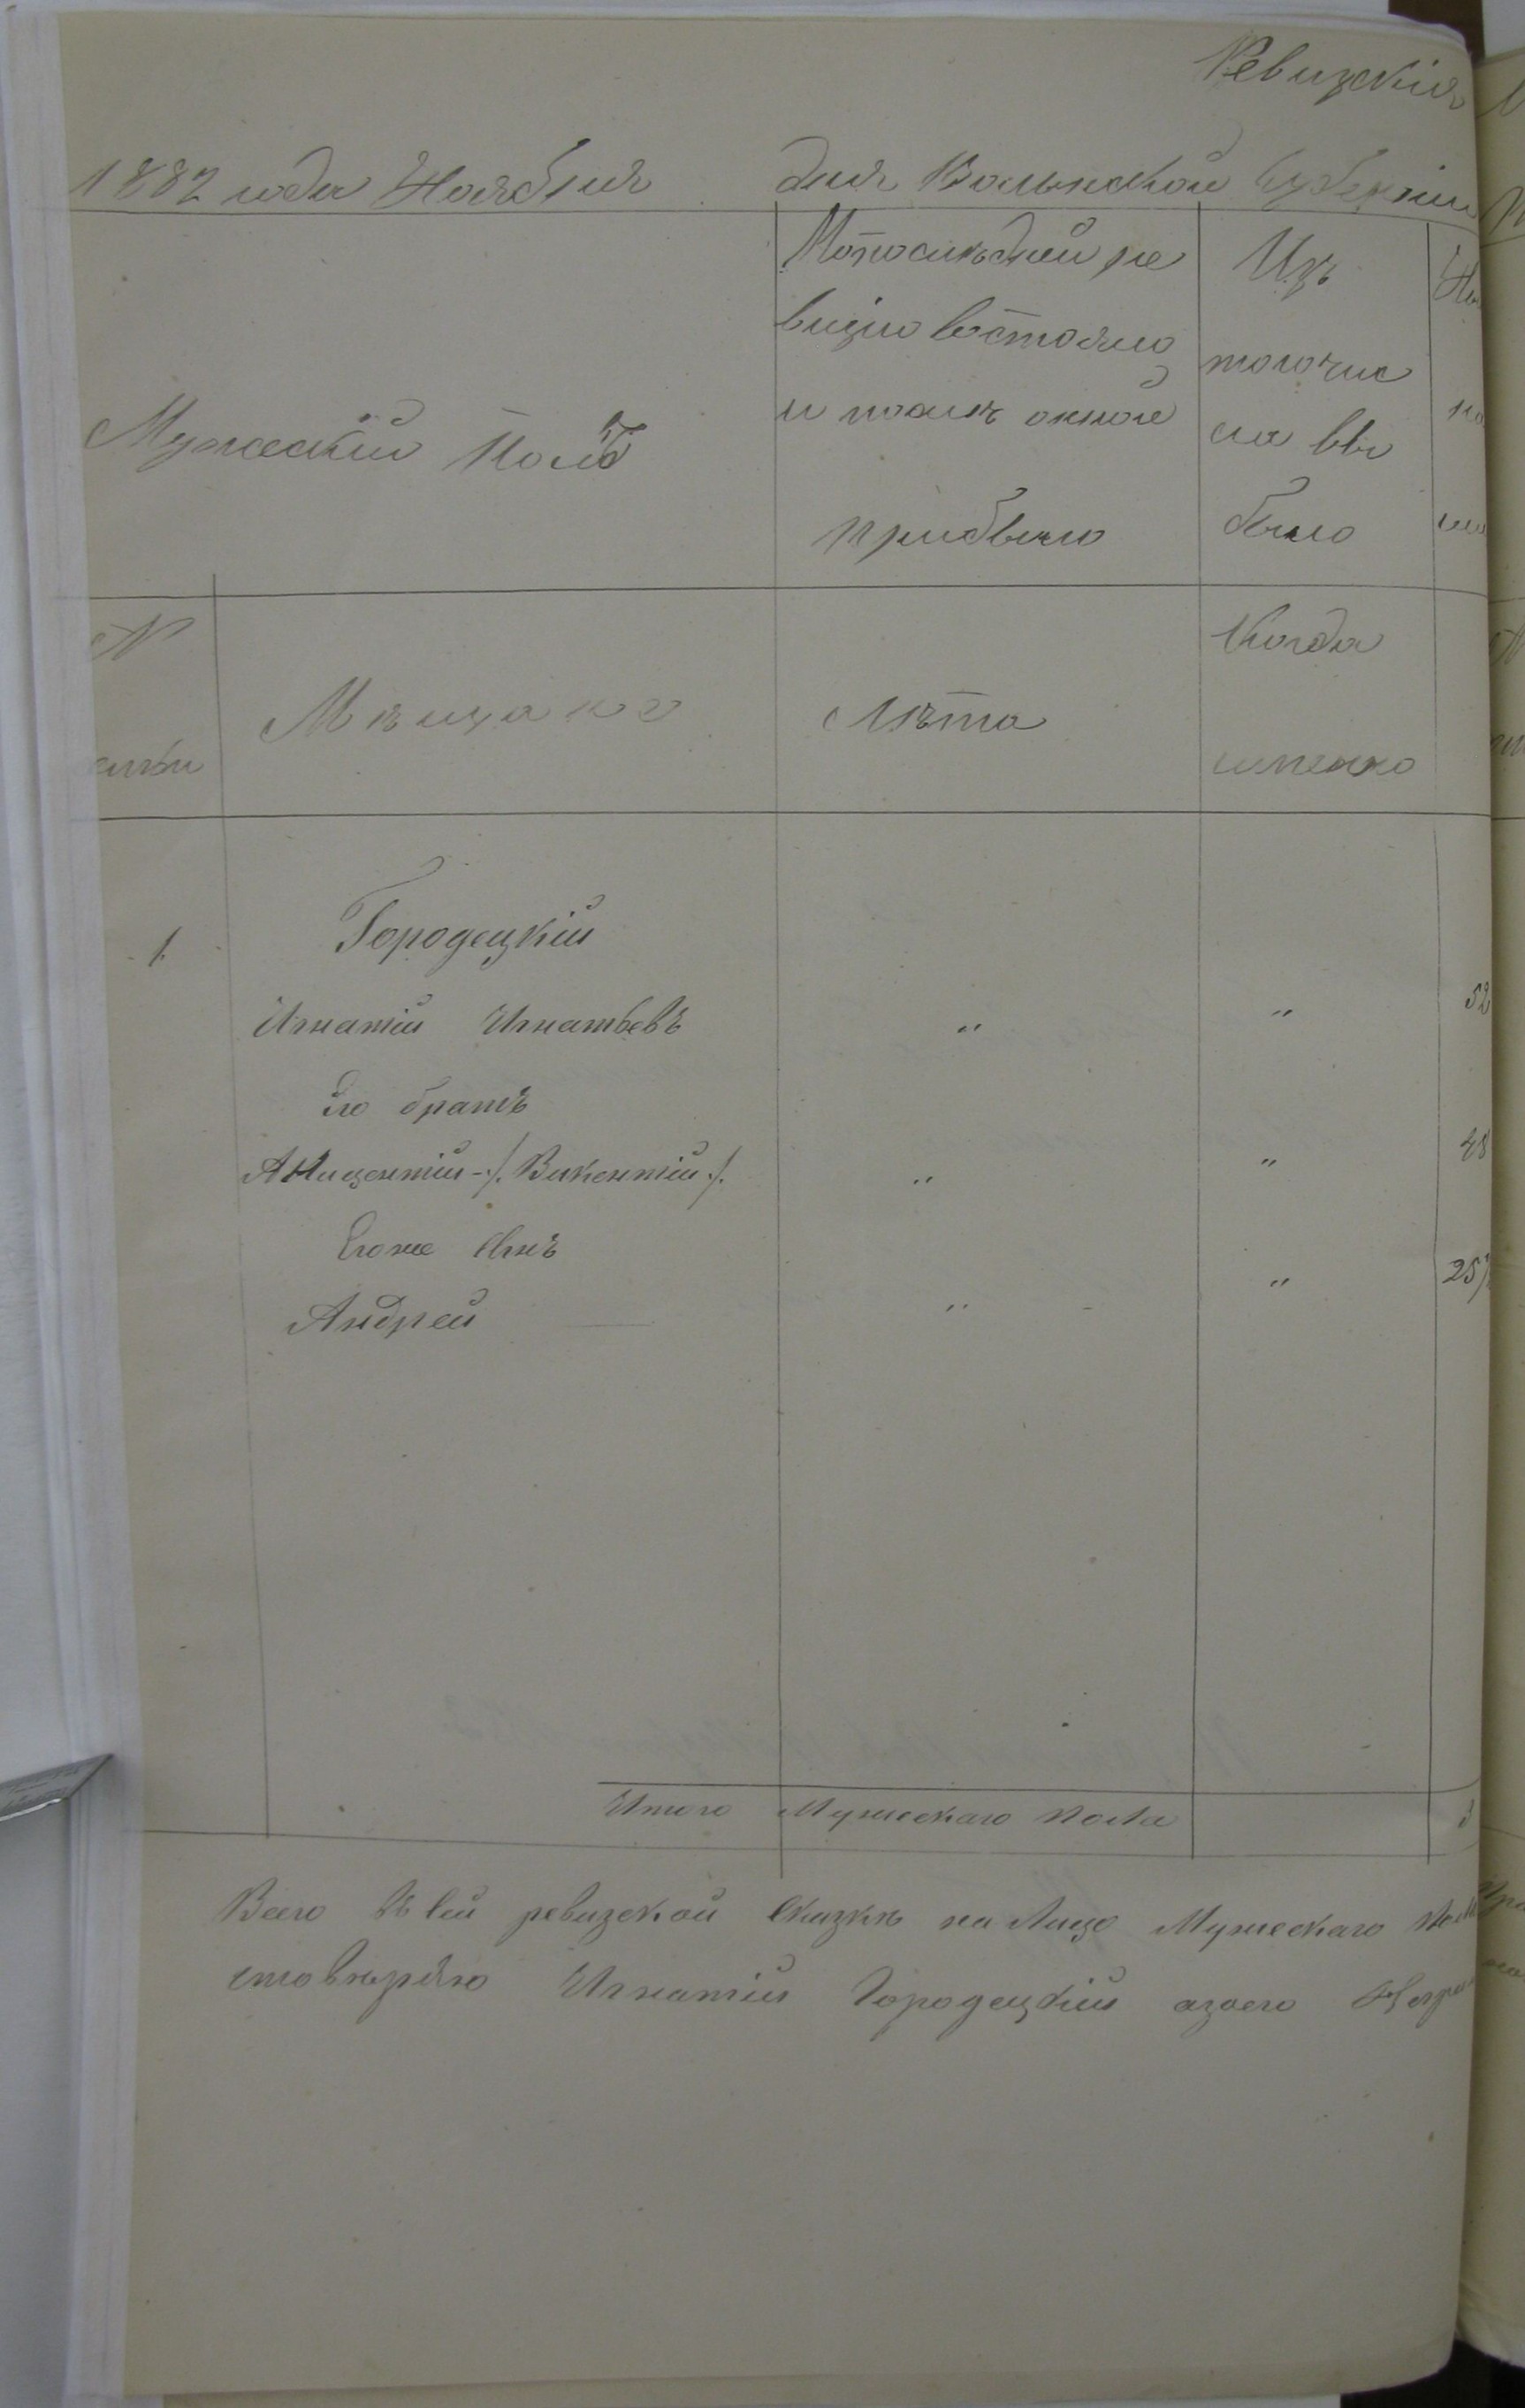 Ревизскія
1882 года Ноября дня Волынской Губерніи
Мужескій Полъ
Мопослѣдней ре
визіи востояло
и послѣ онное
прибыло
Изъ
тогочис
ла вы
было
№
Мѣщане
Лѣта
Когда
именно
1.
Городецкій
Игнатій Игнатьевъ " " 52
Его братъ
Авицентій -/. Викентій ./. " " 48
Егоже Сынъ
Андрей " " 25
Итого Мужескаго пола 3
Всего Въ сей ревизской Сказкѣ на Лицо Мужескаго
Игнатій Городецкій азаего